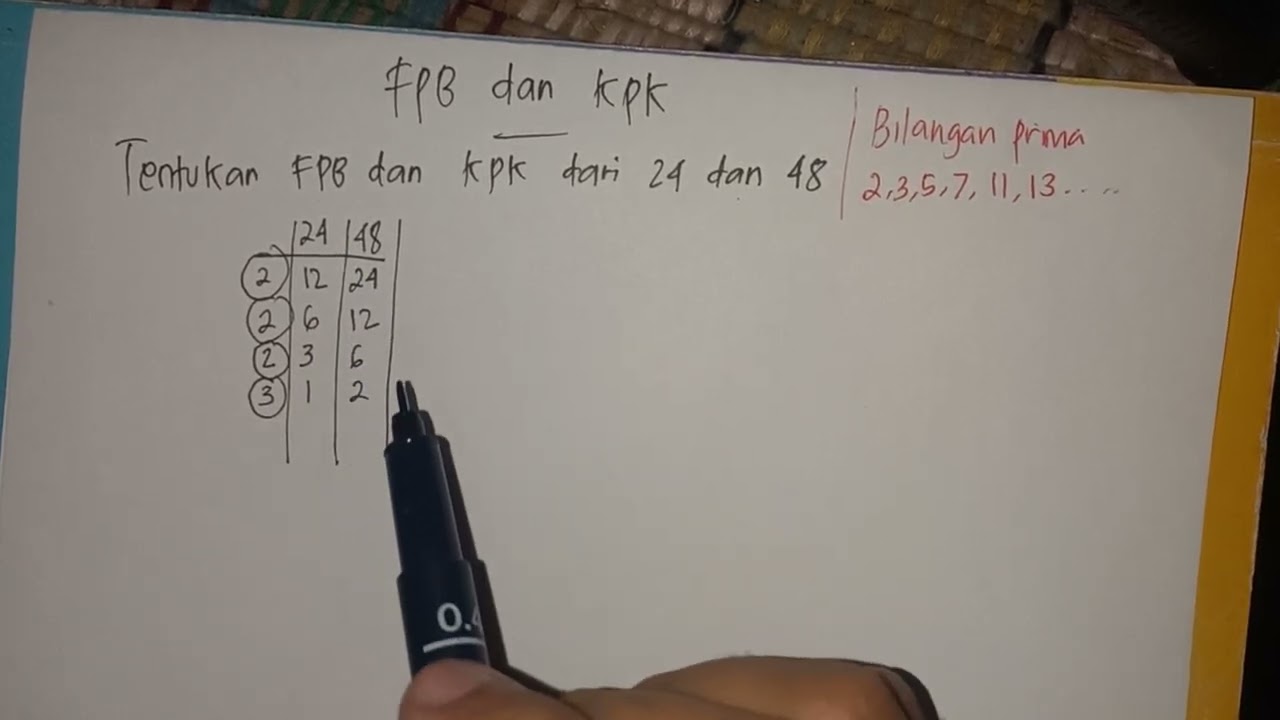 FPB dan KPK
Tentukan FPB dan KPK dari 24 dan 48
Bilangan prima
2,3,5,7, 11, 13.....
24 48
2 12 24
2 6 12
2 3 6
3 1 2